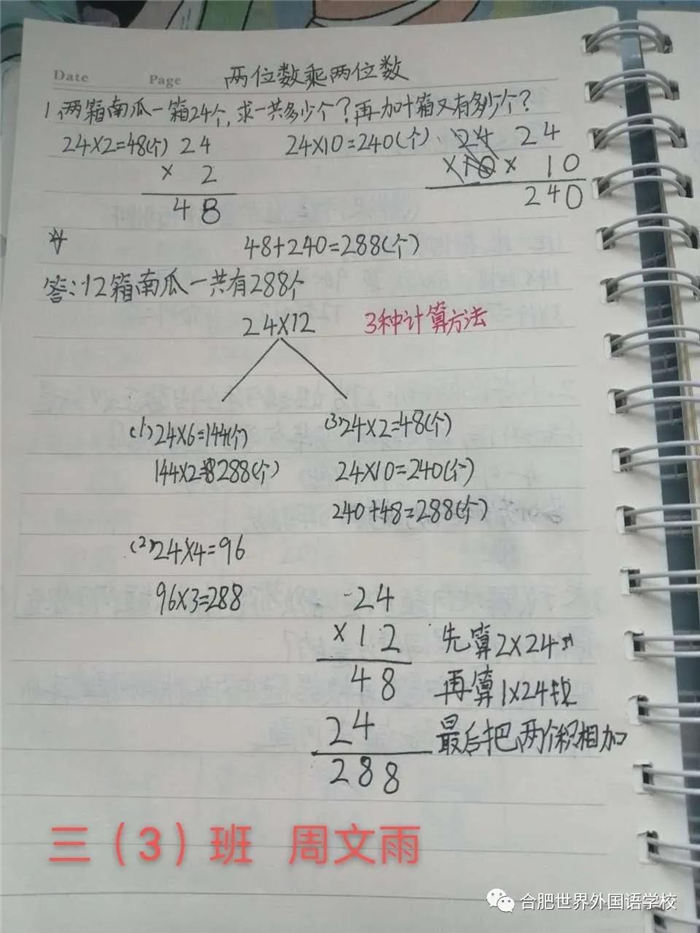 Date Page 两位数乘两位数
1、两箱南瓜一箱24个,求一共多少个?再加十箱又有多少个?
24×2=48(个) 24 24×10=240(个) 24 24
× 2 ×10 × 10
48 240
48+240=288(个)
答:12箱南瓜一共有288个
24×12 3种计算方法
(1)24×6=144(个) (3)24×2=48(个)
144×2=288(个) 24×10=240(个)
240+48=288(个)
(2)24×4=96
96×3=288 24
×12 先算2×24
48 再算1×24
24 最后把两个积相加
288
三(3)班 周文雨
合肥世界外国语学校